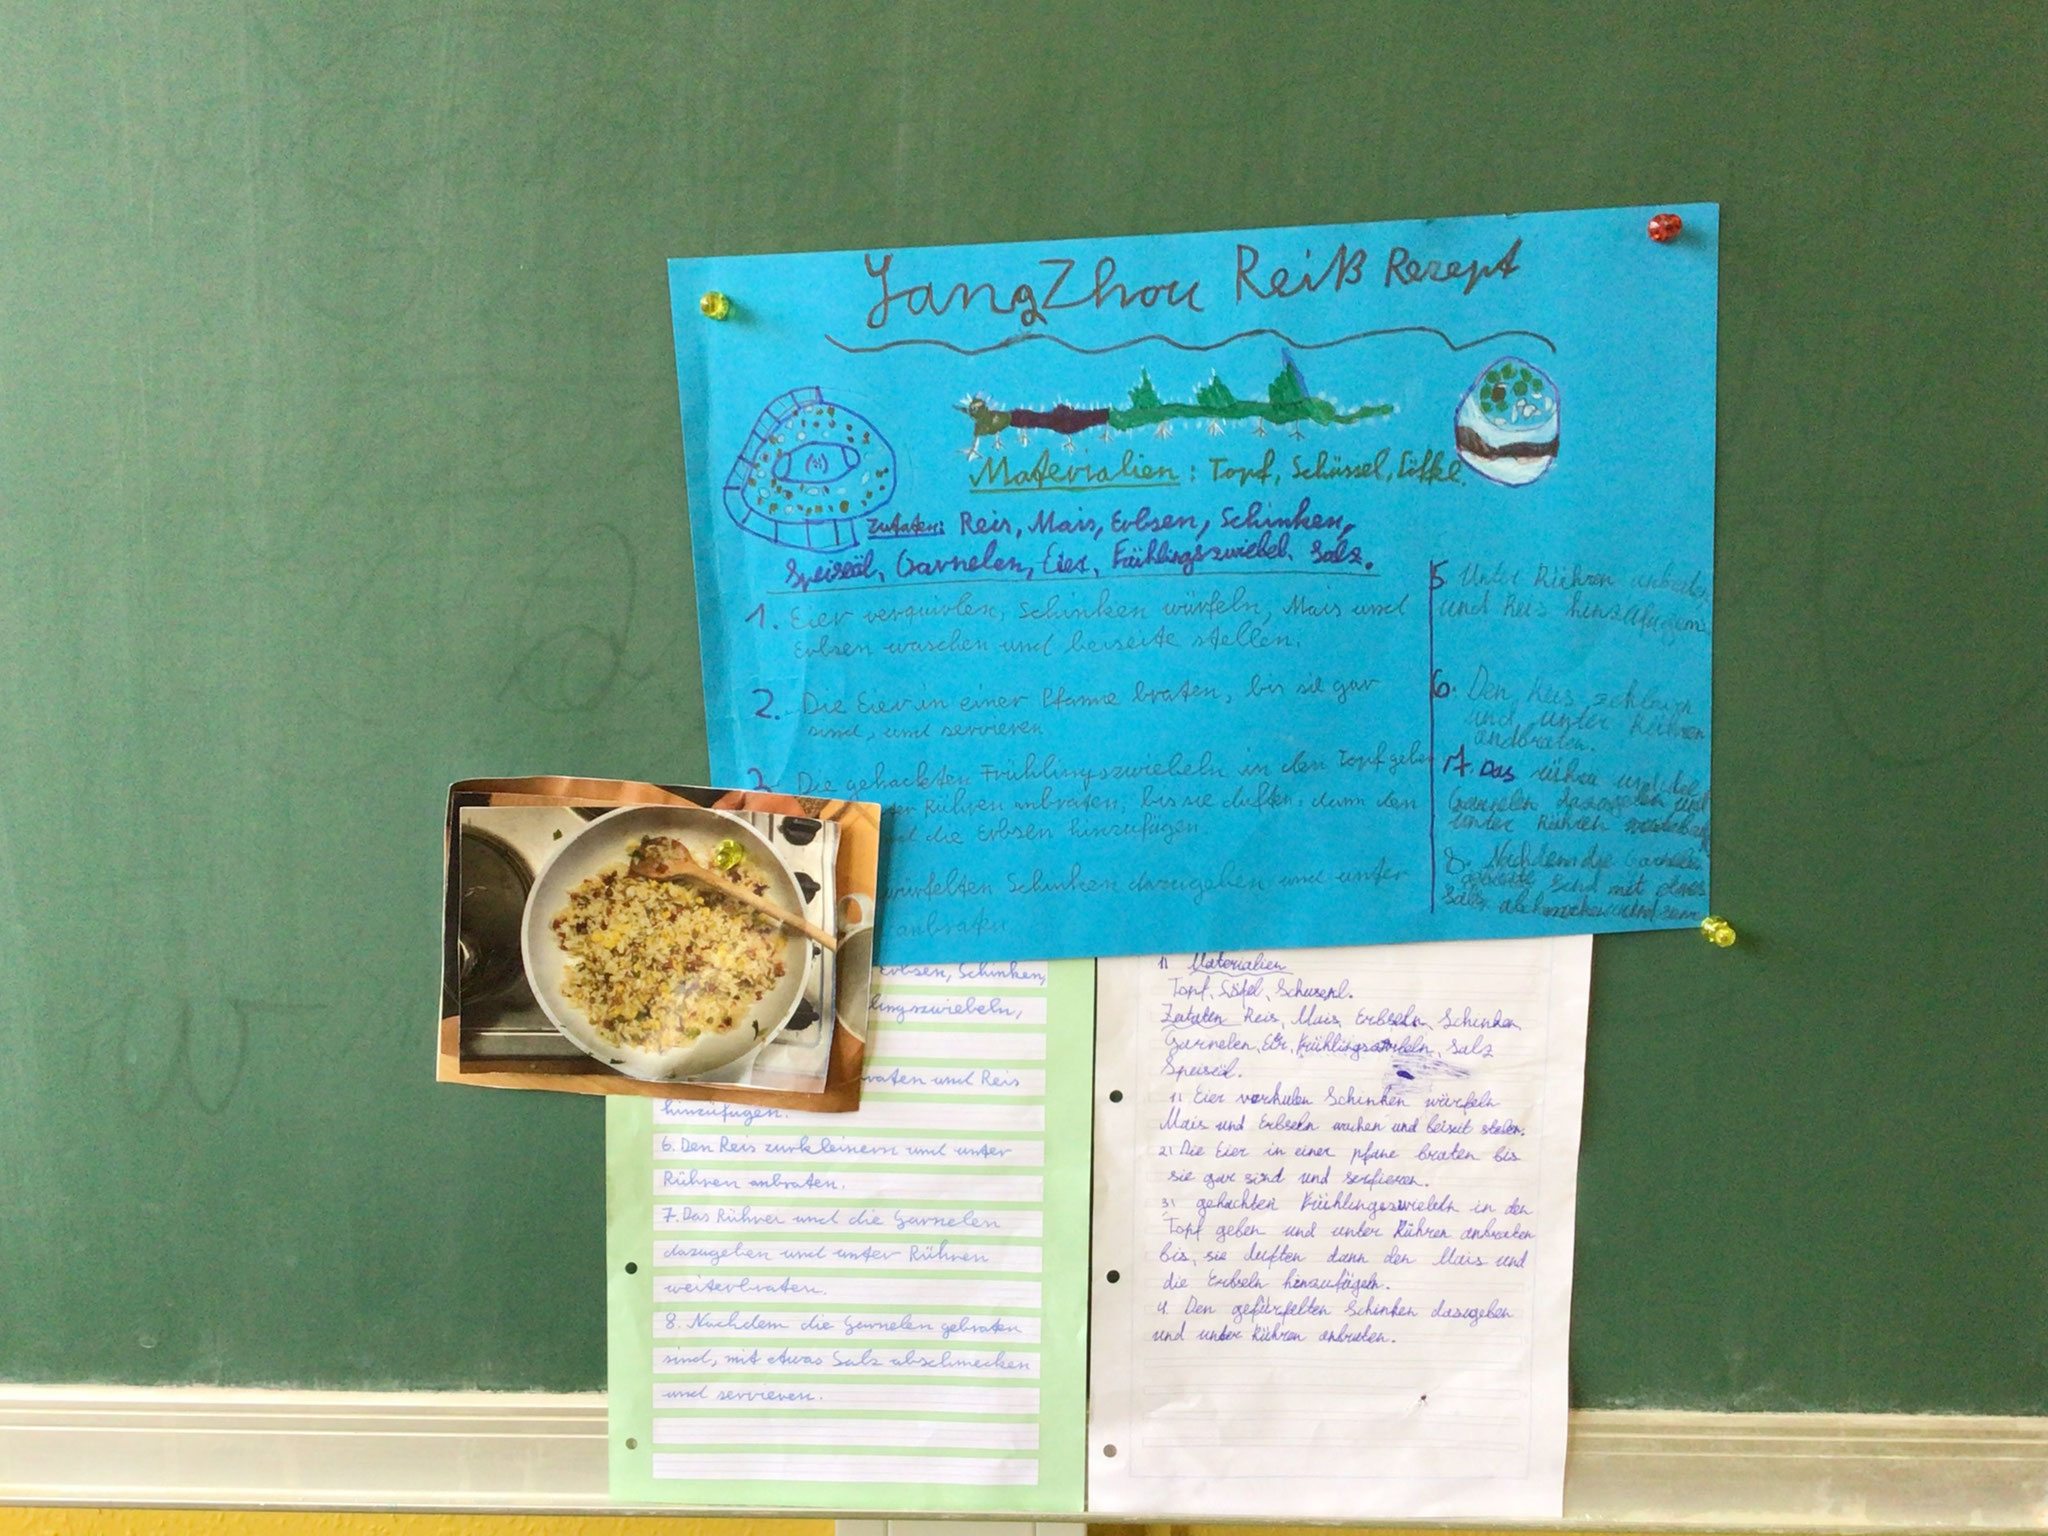 YangZhou Reiß Rezept
Materialien: Topf, Schüssel, Löffel.
Zutaten: Reis, Mais, Erbsen, Schinken,
Speiseöl, Garnelen, Eier, Frühlingszwiebel, Salz.
1. Eier verquirlen, Schinken würfeln, Mais und
Erbsen waschen und beiseite stellen.
2. Die Eier in einer Pfanne braten, bis sie gar
sind, und servieren
3. Die gehackten Frühlingszwiebeln in den Topf geben
Rühren anbraten, bis sie duften, dann den
die Erbsen hinzufügen
würfelten Schinken dazugeben und unter
anbraten.
5 Unter Rühren anbraten
und Reis hinzufügen
6. Den Reis
und unter Rühren
andbraten.
7. Das und die
Garnelen dazugeben und
unter Rühren
8. Nachdem die Garnelen
sind mit etwas
Salz abschmecken und
Erbsen, Schinken,
lingszwiebeln,
raten und Reis
hinzufügen.
6. Den Reis zurkleinern und unter
Rühren anbraten.
7. Das Rührei und die Garnelen
dazugeben und unter Rühren
weiterbraten.
8. Nachdem die Garnelen gebraten
sind, mit etwas Salz abschmecken
und servieren.
Materialien
Topf, Löfel, Schuserl.
Zutaten Reis, Mais, Erbseln, Schinken
Garnelen, Eir, Salz
Speiseöl.
1) Eier verhulen Schinken würfeln
Mais und Erbseln wachen und beiseit stelen.
2) Die Eier in einer pfane braten bis
sie gar sind und serfieren.
3) gehackten Frühlingszwiebeln in den
Topf geben und unter Rühren anbraten
bis, sie duften dann den Mais und
die Erbseln hinzufügeln.
4. Den gefürfelten Schinken dazugeben
und unter Rühren anbraten.